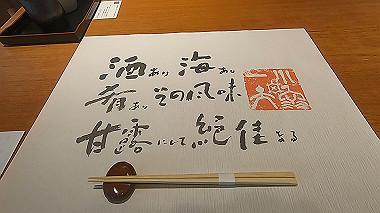 酒あり海あり
肴ありその風味
甘露にして絶佳となる